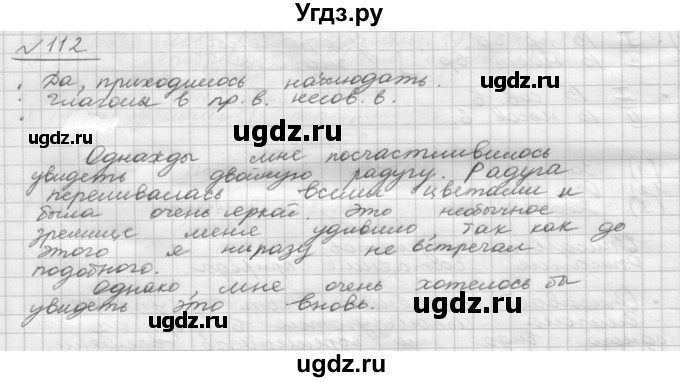 Угдз.ру
№112
Да, приходилось наблюдать.
Глаголы в пр. в. несов. в.
ugdz.ru ugdz.ru
Однажды мне посчастливилось
увидеть двойную радугу. Радуга
переливалась всеми цветами и
была очень яркой. Это необычное
зрелище меня удивило, так как до
этого я ниразу не встречал
подобного.
ugdz.ru ugdz.ru
Однако, мне очень хотелось бы
увидеть это вновь.
ugdz.ru ugdz.ru
ugdz.ru